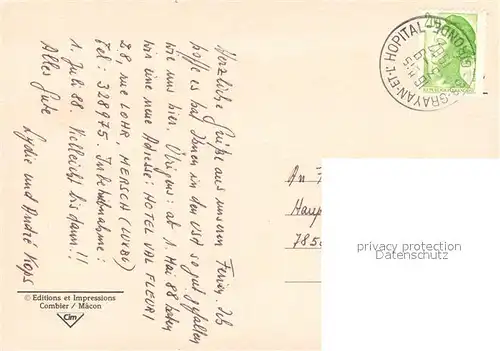 Herzliche Grüße aus unseren Ferien. Ich
hoffe es hat Ihnen in den USA so gut gefallen
wie uns hier. Übrigens: ab 1. Mai 88 haben
wir eine neue Adresse: HOTEL VAL FLEURI
28, rue LOHR, MERSCH (LUXBG)
Tel: 328975. Inbetriebnahme:
1. Juli 88. Vielleicht bis dann!!
Alles Gute
Lydie und André Kops
GRAYAN-ET-L'HOPITAL
GIRONDE
An
Haup
785
privacy protection
watermark
© Editions et Impressions
Combier / Mâcon
Cim